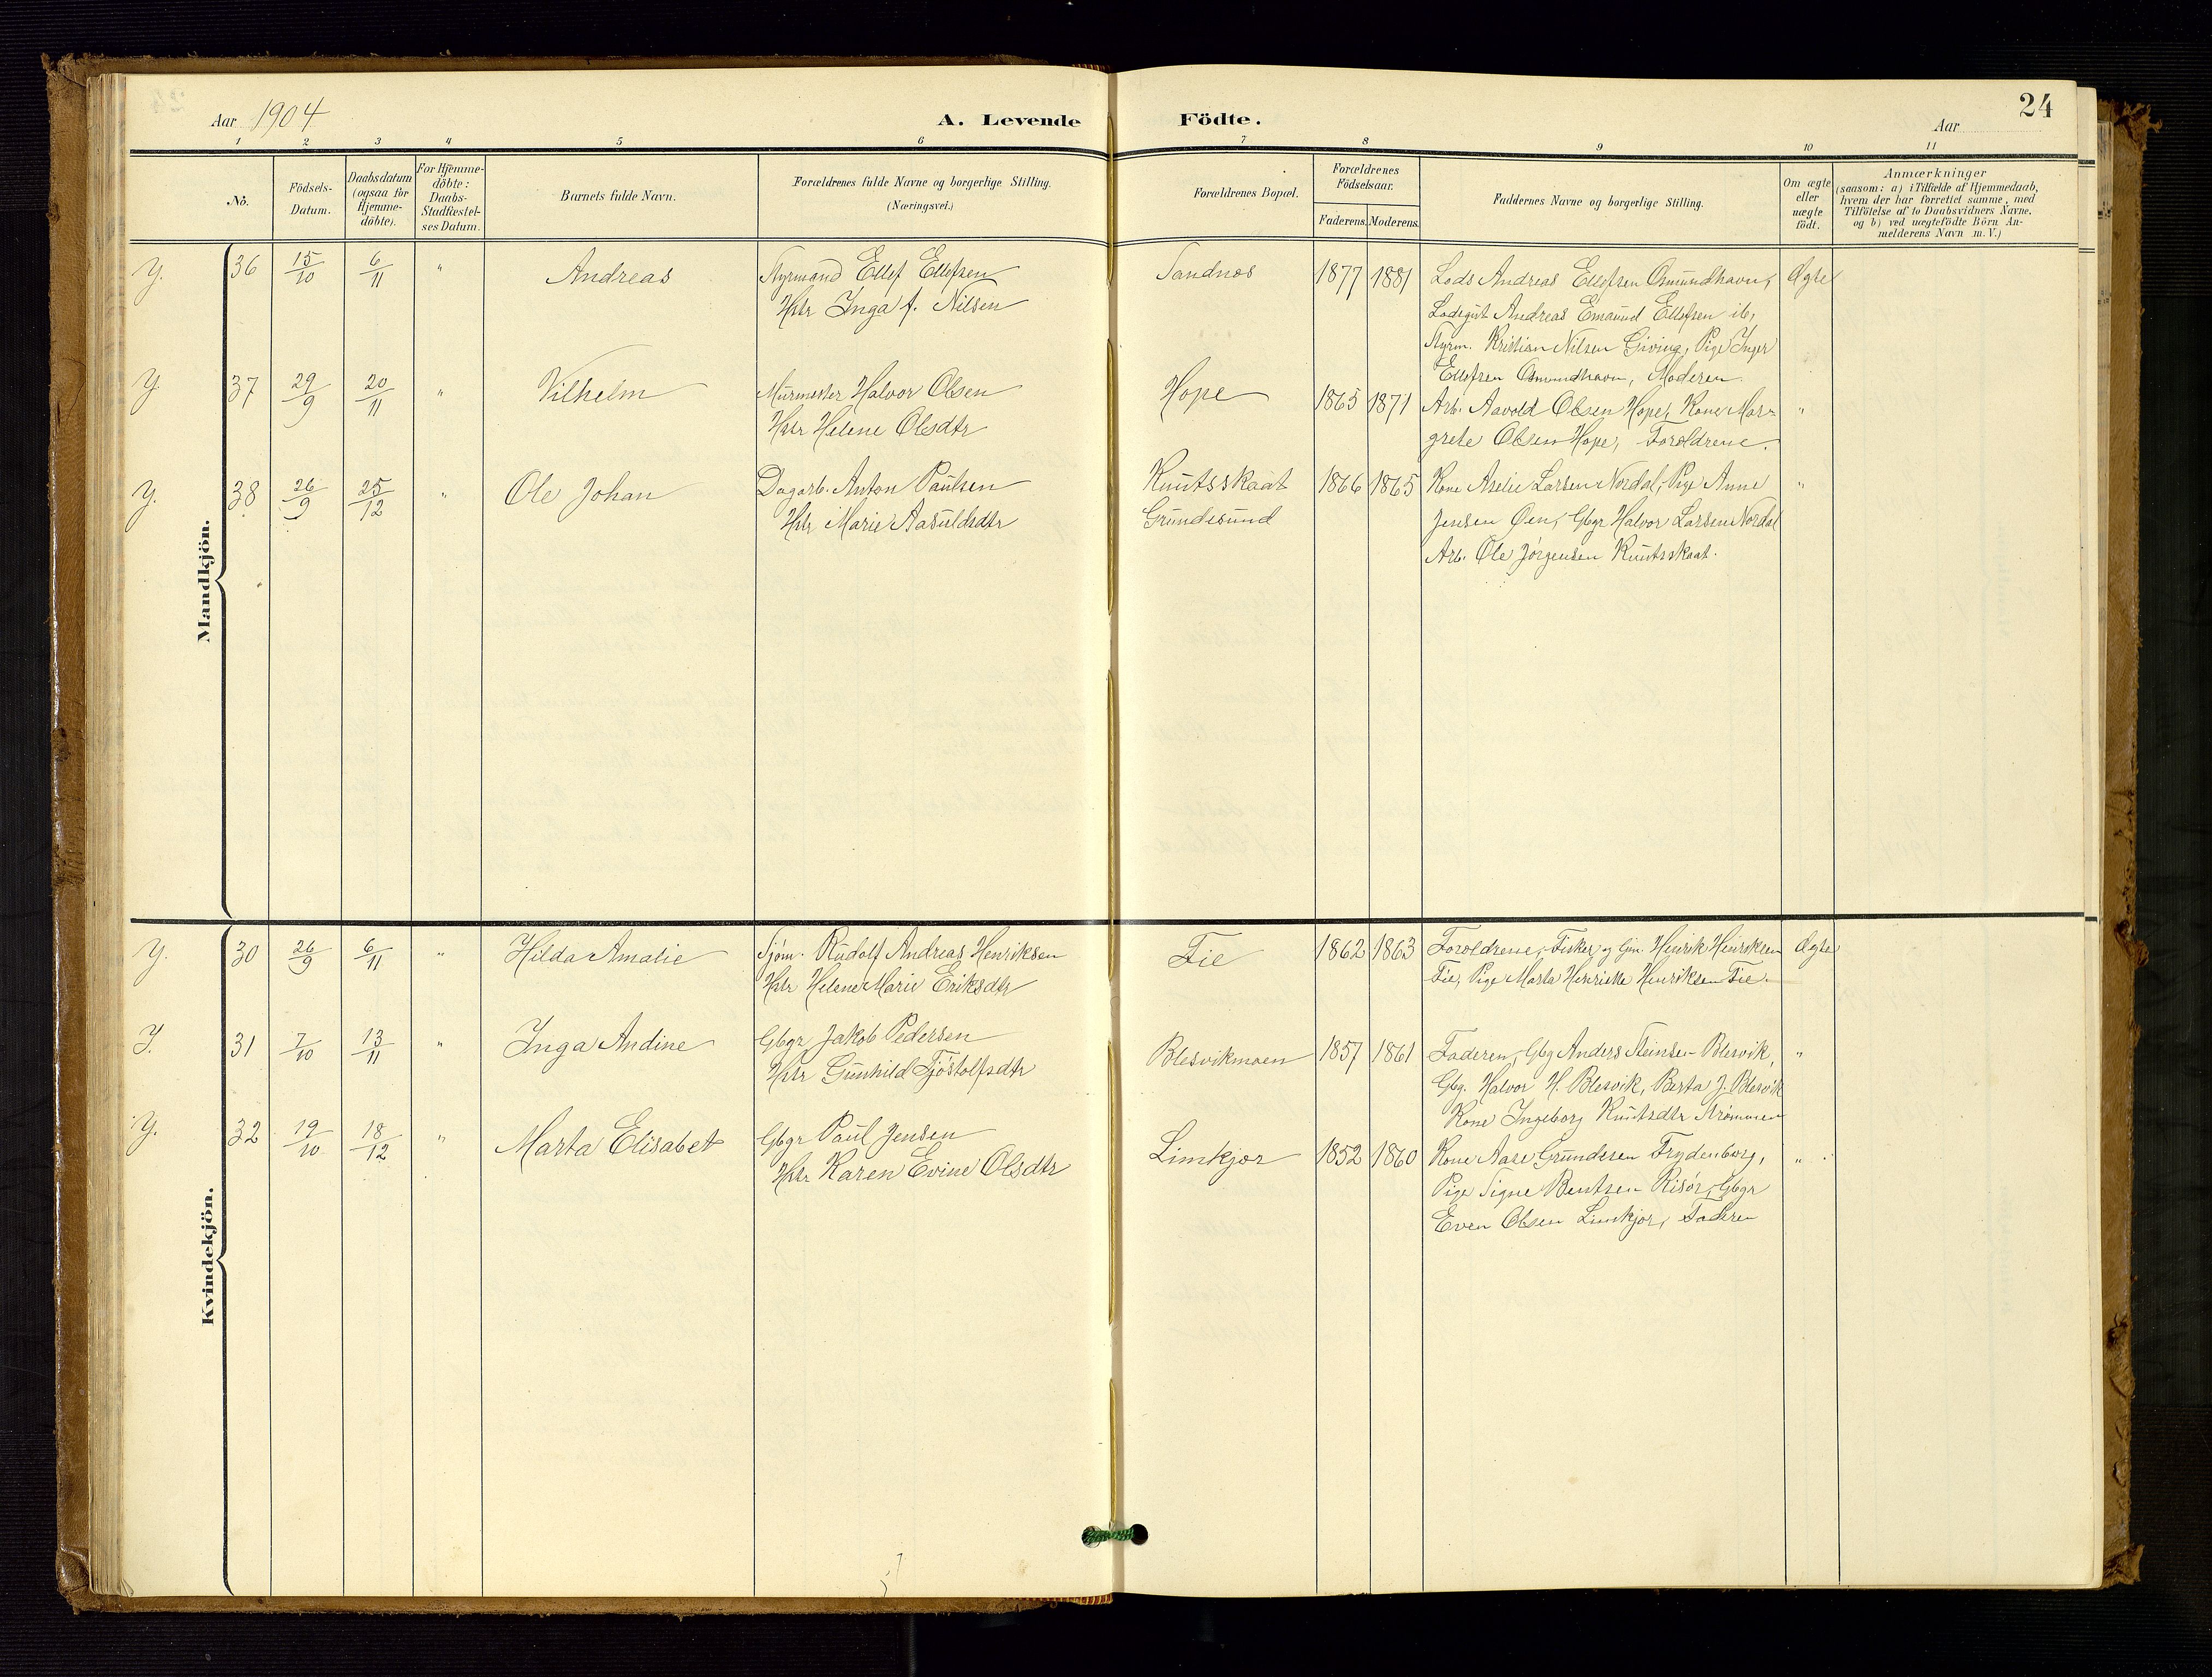 24
Aar 1904
A. Levende Födte.
Aar
1 2 3 4 5 6 7 8 9 10 11
No.
Födsels-Datum.
Daabsdatum (ogsaa for Hjemme-döbte).
For Hjemme-döbte: Daabs-Stadfæstel-ses Datum.
Barnets fulde Navn.
Forældrenes fulde Navne og borgerlige Stilling.
(Næringsvei.)
Forældrenes Bopæl.
Forældrenes Födselsaar.
Faderens. Moderens.
Faddernes Navne og borgerlige Stilling.
Om ægte eller uægte födt.
Anmærkninger
(saasom: a) i Tilfælde af Hjemmedaab,
hvem der har forrettet samme, med
Tilföielse af to Daabsvidners Navne,
og b) ved uægtefödte Börn An-
melderens Navn m. V.)
Mandkjön.
Y. 36 15/10 6/11 " Andreas
Styrmand Ellef Ellefsen
Hstr Inga f. Nilsen
Sandnes 1877 1881
Lods Andreas Ellefsen Osmundhavn,
Lodsgut Andreas Emaund Ellefsen ib,
Styrm. Kristian Nilsen Giving, Pige Inger
Ellefsen Osmundhavn, Moderen.
Ægte
Y. 37 29/9 20/11 " Vilhelm
Murmester Halvor Olsen
Hstr Helene Olsdtr
Hope 1865 1871
Arb. Aavold Olsen Hope, Kone Mar-
grete Olsen Hope, Forældrene.
"
Y. 38 26/9 25/12 " Ole Johan
Dagarb. Anton Paulsen
Hstr Marie Aasuldsdtr
Knutsskaat
Grundesund
1866 1865
Kone Aselie Larsen Nordal, Pige Anne
Jensen Øen, Gbgr Halvor Larsen Nordal
Arb. Ole Jørgensen Knutsskaat.
"
Kvindekjön.
Y. 30 26/9 6/11 " Hilda Amalie
Sjøm. Rudolf Andreas Henriksen
Hstr Helene Marie Eriksdtr
Fie 1862 1863
Forældrene, Fisker og Gm. Henrik Henriksen
Fie, Pige Marta Henriette Henriksen Fie.
Ægte
Y. 31 7/10 13/11 " Inga Andine
Gbgr Jakob Pedersen
Hstr Gunhild Tjøstolfsdtr
Blesvikmoen 1857 1861
Faderen, Gbg Anders Steinsen Blesvik,
Gbg. Halvor H. Blesvik, Berta J. Blesvik
Kone Ingeborg Knutsdtr Strømmen
"
Y. 32 19/10 18/12 " Marta Elisabet
Gbgr Paul Jensen
Hstr Karen Evine Olsdtr
Limkjør 1852 1860
Kone Aase Grundesen Frydenborg,
Pige Signe Bentsen Risør, Gbgr
Even Olsen Limkjør, Faderen
"